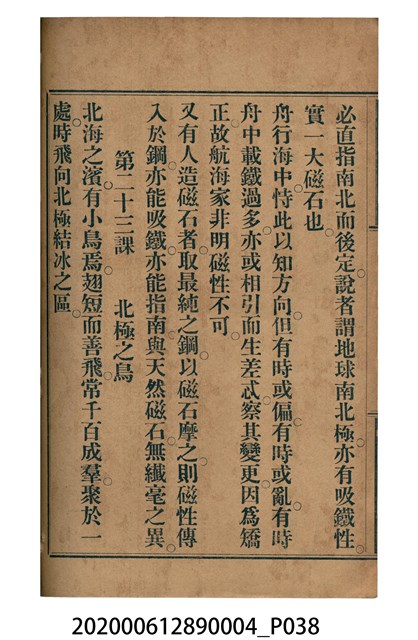 必直指南北而後定說者謂地球南北極亦有吸鐵性。
實一大磁石也。
舟行海中恃此以知方向。但有時或偏。有時或亂。有時
舟中載鐵過多。亦或相引而生差忒。察其變更。因爲矯
正。故航海家非明磁性不可。
又有人造磁石者。取最純之鋼。以磁石摩之。則磁性傳
入於鋼。亦能吸鐵。亦能指南。與天然磁石無纖毫之異。
第二十三課 北極之鳥
北海之濱。有小鳥焉。翅短而善飛。常千百成羣。聚於一
處。時飛向北極結冰之區。
202000612890004_P038